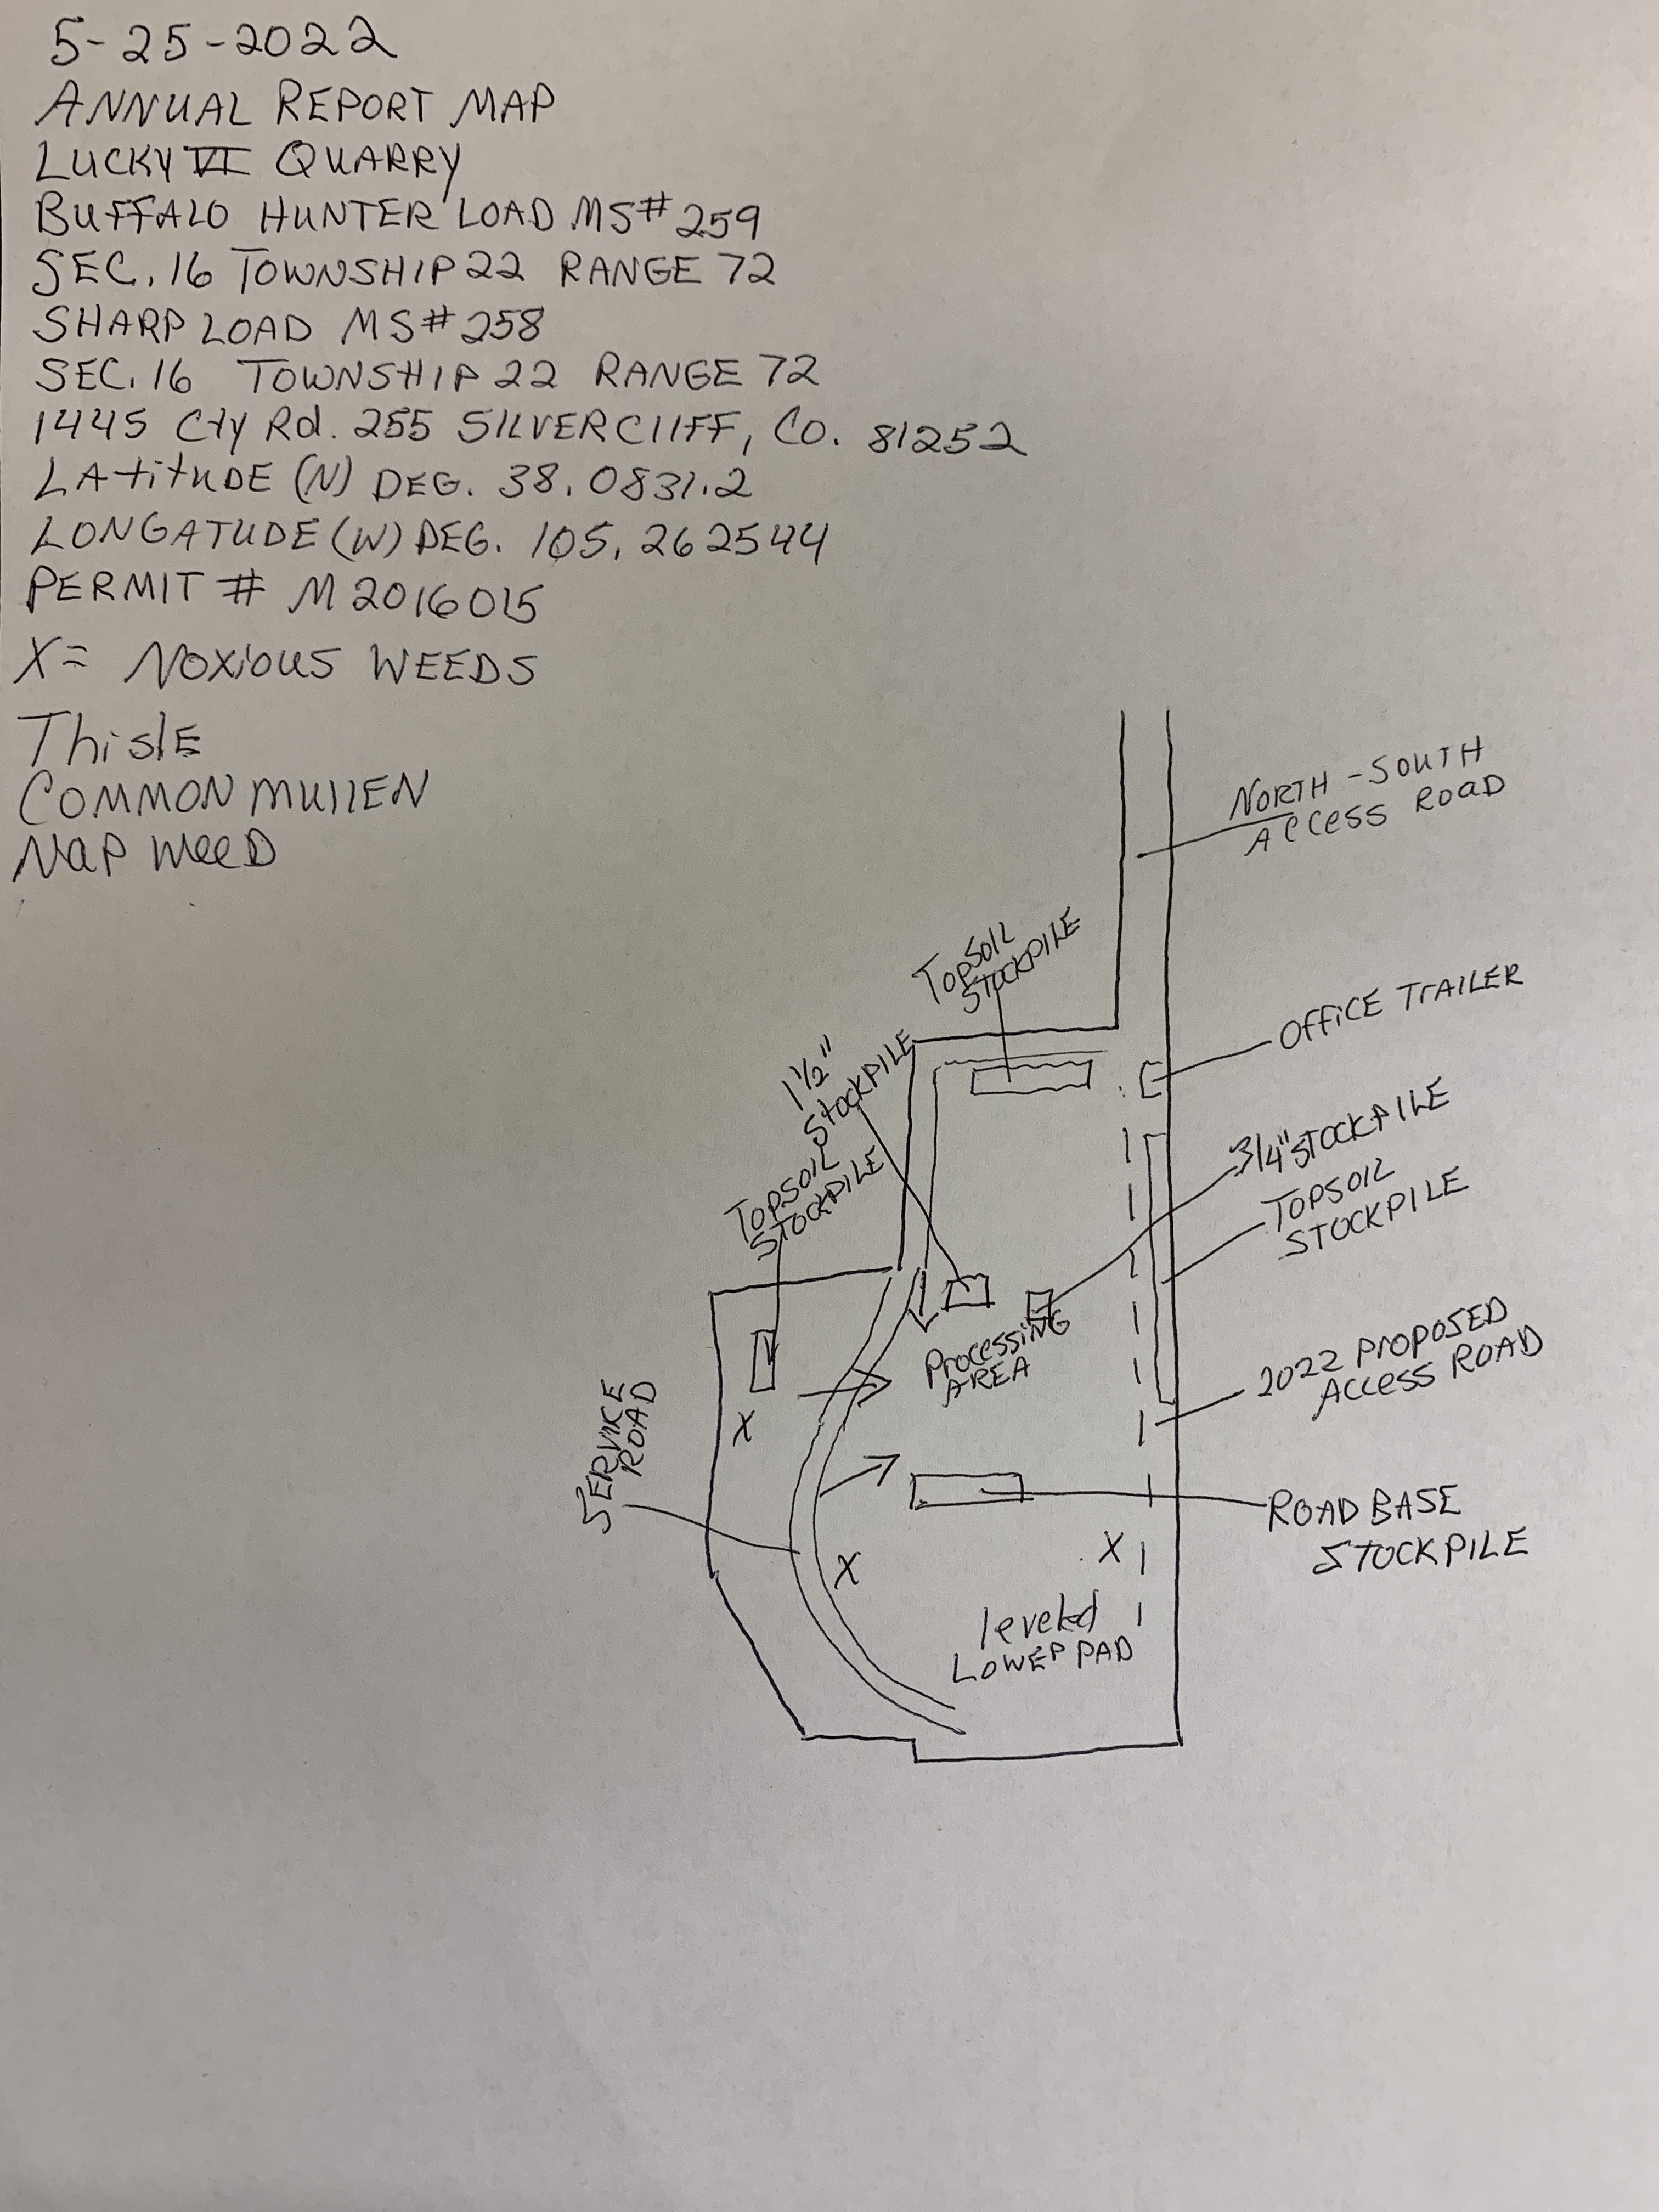 5-25-2022
ANNUAL REPORT MAP
LUCKY VI QUARRY
BUFFALO HUNTER LOAD MS# 259
SEC. 16 TOWNSHIP 22 RANGE 72
SHARP LOAD MS# 258
SEC. 16 TOWNSHIP 22 RANGE 72
1445 Cty Rd. 255 SILVERCLIFF, CO. 81252
LAtitUDE (N) DEG. 38.0831.2
LONGATUDE (W) DEG. 105.262544
PERMIT # M2016015
X= NOXiOUS WEEDS
ThislE
COMMON MUllEN
NaP WeeD
NORTH-SOUTH
ACCess ROaD
TOPSOIL
STOCKPILE
OFFiCE TrAILER
1 1/2"
StOCKPILE
3/4" STOCKPILE
TOPSOIL
STOCKPILE
TOPSOIL
STOCKPILE
Processing
AREA
2022 PrOPOSED
ACCESS ROAD
SERVICE
ROAD
X
ROAD BASE
STOCKPILE
X
X
leveled
LOWER PAD